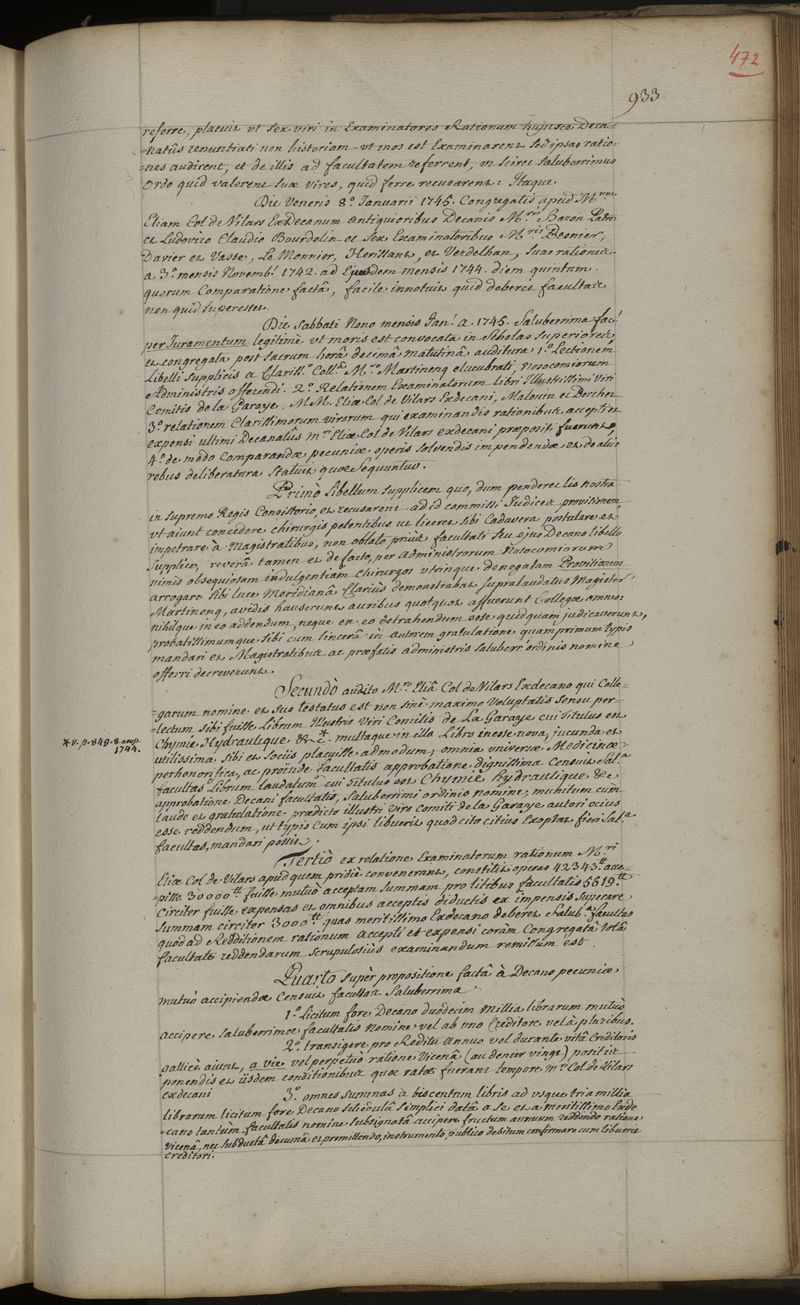 472
933
referre, placuit vt sex viri in Examinatores Rationum hujusce Deca=
=natûs renuntiati non historiam vt mos est Examinarent sed ipsas ratio=
=nes audirent, et de illis ad facultatem referrent, vt sciret saluberrimus
ordo quid valerent suæ vires, quid ferre recusarent: Itaque
Die Veneris 8.ª Januarii 1745. Congregatis apud M.rum
Eliam Col de Vilars Exdecanum antiquioribus Decanis M.ris Baron Patre
et Ludovico Claudio Bourdelin et sex Examinatoribus M.ris Besnier,
Davier et Vasse, Le Monnier, Herissant, et Verdelhan, suas rationes
a 3.º mensis Novemb.' 1742. ad Ejusdem mensis 1744. diem quintum.
quorum Comparatione factâ, facile innotuit quid deberet facultas
non quid superesset.
Die Sabbati Nono mensis Jan.' a. 1745. Saluberrima fac.'
per Juramentum legitimè vt moris est convocata in Scholas Superiores,
et congregata post sacrum horâ decimâ matutinâ auditura 1.º Lectionem
Libelli Supplicis a Clariss.º Collª M.ro Martineng elucubrati, Nosocomiorum
Administris offerendi. 2.º Relationem Examinatorum Libri Illustrissimi Viri
Comitis de la Garaye, M.M. Eliæ Col de Vilars Exdecani, Malouin et Bercher
3.º relationem Clarissimorum virorum qui examinandis rationibus accepti et
expensi ultimi Decanatûs M.ri Eliæ Col de Vilars exdecani præpositi fuerunt,
4.º de modo Comparandæ pecuniæ operis solvendis impendendæ et de aliis
rebus deliberatura statuit quæ Sequuntur.
Primò Libellum supplicem quo, dum penderet lis nostra
in supremo Regis Consistorio, et recusarent ad id commissi Judices provisionem,
vt aiunt concedere chirurgis petentibus ut liceret sibi Cadavera postulare et
impetrare à Magistratibus, non oblato priùs facultati seu ejus Decano libello
supplice, reverâ tamen et de facto, per administrorum Nosocomiorum
nimis obsequiosam indulgentiam chirurgos vtrinque denegatam Provisionem
arrogare sibi luce Meridianâ Clariùs demonstrabat supra laudatus Magister
Martineng, avidis hauserunt auribus quotquot affuerunt Collegæ omnes
nihilque in eo addendum, neque ex eo detrahendum esse quidquam judicaverunt,
probatissimumque sibi cum sincerâ in autorem gratulatione quamprimum typis
mandari et Magistratibus ac præfatis administris saluberr. ordinis nomine
offerri decreverunt.
Secundò audito M.ro Eliâ Col de Vilars Exdecano qui Colle=
=garum nomine et suo testatus est non sinè maximo voluptatis sensu per=
=lectum sibi fuisse Librum Illustris Viri Comitis de La Garaye cui titulus est
* v. p. 849. 8. aug.
1744.
Chymie Hydraulique &c.* multaque in illo Libro inesse nova, jucunda et
utilissima sibi et sociis placuisse admodum, omnia universæ Medicinæ
perhonorifica, ac proinde facultatis approbatione dignissima Censuit Salª
facultas Librum laudatum cui titulus est Chymie hydraulique &c
approbatione Decani facultatis, saluberrimi ordinis nomine, munitum cum
laude et gratulatione prædicto illustri viro Comiti de la Garaye autori ocius
esse reddendum, ut typis cum ipsi libuerit quod cito citius Exoptat fieri Salª
facultas, mandari possit.
Tertiò ex relatione Examinatorum rationum M.ri
Eliæ Col de Vilars apud quem pridiè convenerant, constitit operas 42343.tt acce=
=pisse 30000.tt fuisse mutuò acceptam Summam pro litibus facultatis 5619.tt
circiter fuisse expensas et omnibus acceptis deductis ex impensis superare
summam circiter 3000.tt quas meritissimo Exdecano deberet Salub.ª facultas
quod ad Redditionem rationum accepti et expensi coràm Congregatâ totâ
facultate reddendarum scrupulosiùs examinandum remissum est.
Quarto supèr propositione factâ à Decano pecuniæ
mutuò accipiendæ censuit facultas Saluberrima
1.º Licitum fore Decano duodecim millia librarum mutuò
accipere saluberrimæ facultatis nomine vel ab uno Creditore vel à pluribus.
2.º transigere pro Reditu annuo vel durante vitâ Creditoris
gallicè aiunt, a vie vel perpetuò ratione Vicenâ (au denier vingt) positis
ponendis et iisdem conditionibus quæ ratæ fuerant tempore M.ri Col de Vilars
exdecani
3.º omnes summas à biscentum libris ad vsque tria millia
librarum licitum fore Decano schedulâ simplici datâ a se et a meritissimo Exde
=cano tantùm facultatis nomine subsignatâ accipere fructum annuum reddendo ratione
Vicenâ, nec subductâ decumâ et promittendo, instrumento publico debitum confirmare cum libuerit
creditori.